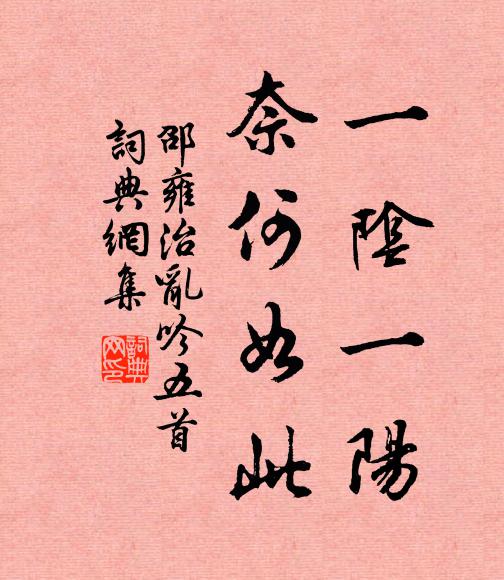 一陰一陽
奈何如此
邵雍治亂吟五首
詞典網集
詞典網印